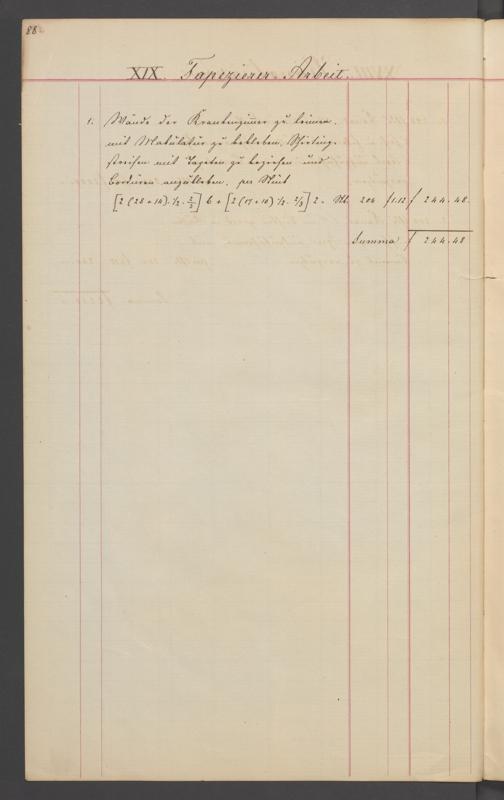 88
XIX. Tapezierer Arbeit.
1. Wände der Krankenzimmer zu leimen,
mit Makulatur zu bekleben, Shirting-
streifen mit Tapeten zu beziehen und
Borduren anzukleben. per Stück
[2 (28 + 14) · 1/2 · 2/3] 6 + [2 (17 + 10) 1/2 · 2/3] 2 = Stk. 204 f 1.12 f 244.48.
Summa f 244.48